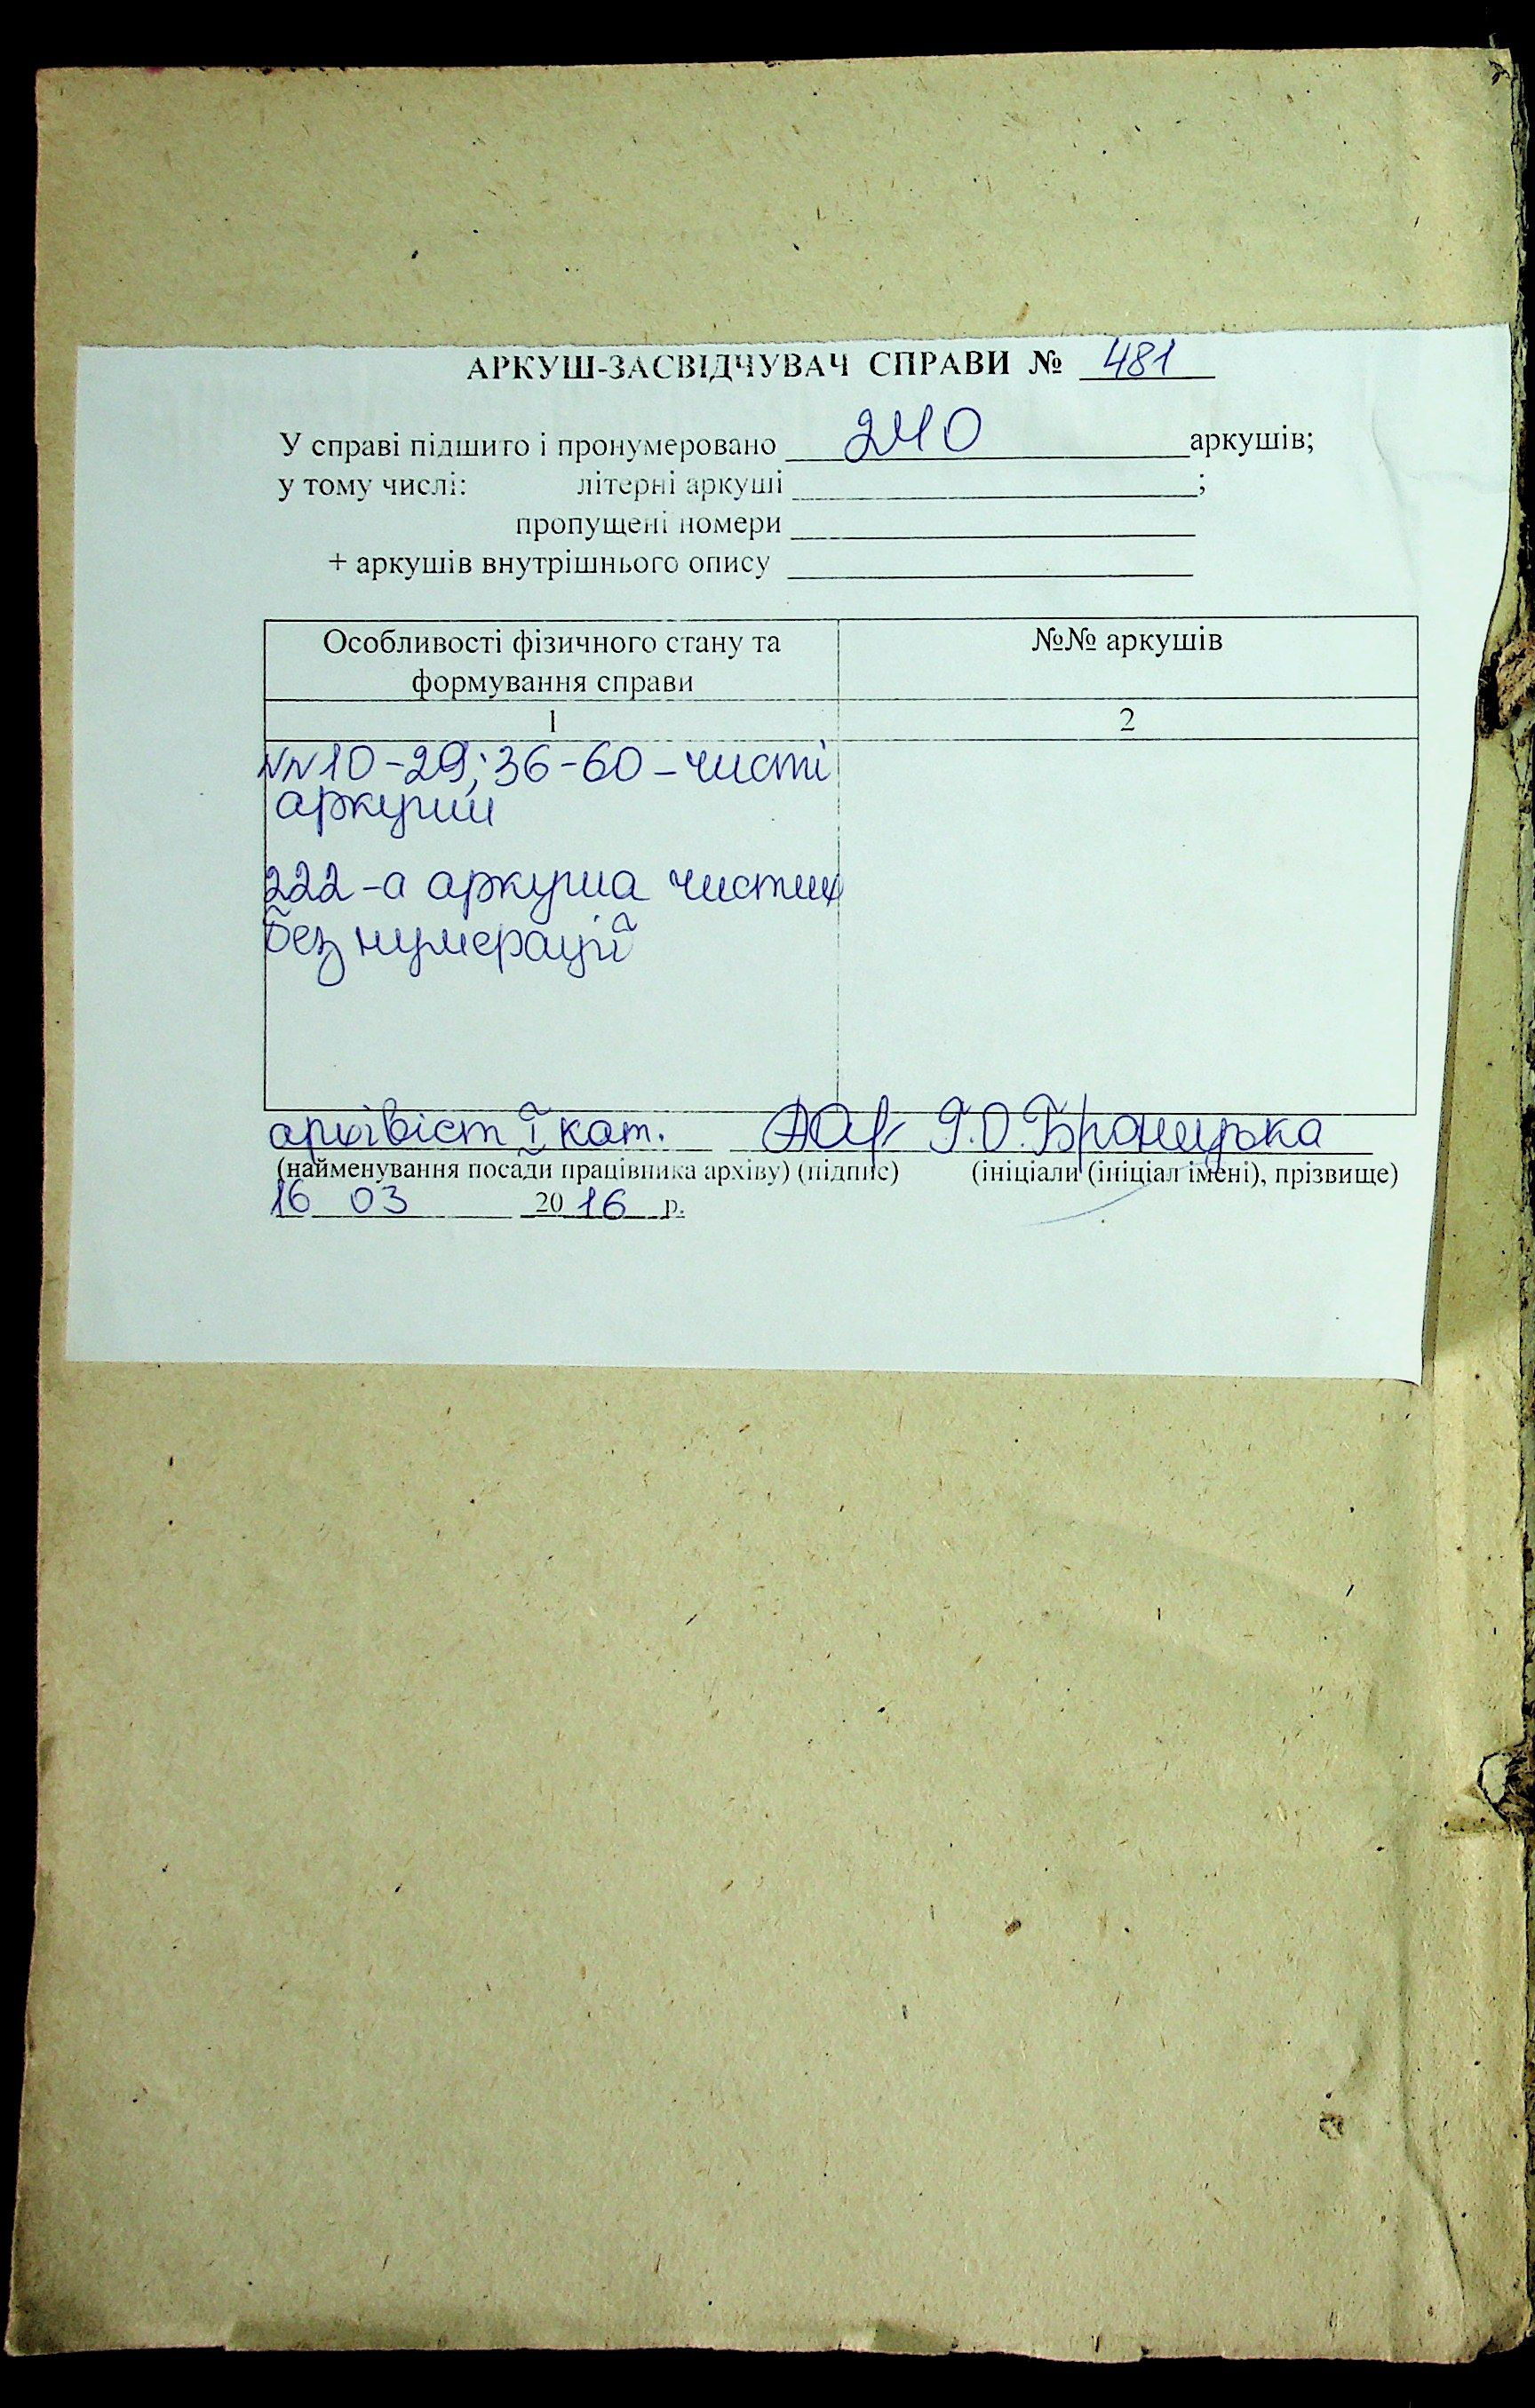 АРКУШ-ЗАСВІДЧУВАЧ СПРАВИ № 481
У справі підшито і пронумеровано 240 аркушів;
у тому числі: літерні аркуші ;
пропущені номери
+ аркушів внутрішнього опису
Особливості фізичного стану та
формування справи
№№ аркушів
1
2
№№ 10-29; 36-60 - чисті
аркуши
222-а аркуша чистих
без нумерації
архівіст I кат. Г.О. Броницька
(найменування посади працівника архіву) (підпис) (ініціали (ініціал імені), прізвище)
16 03 2016 р.